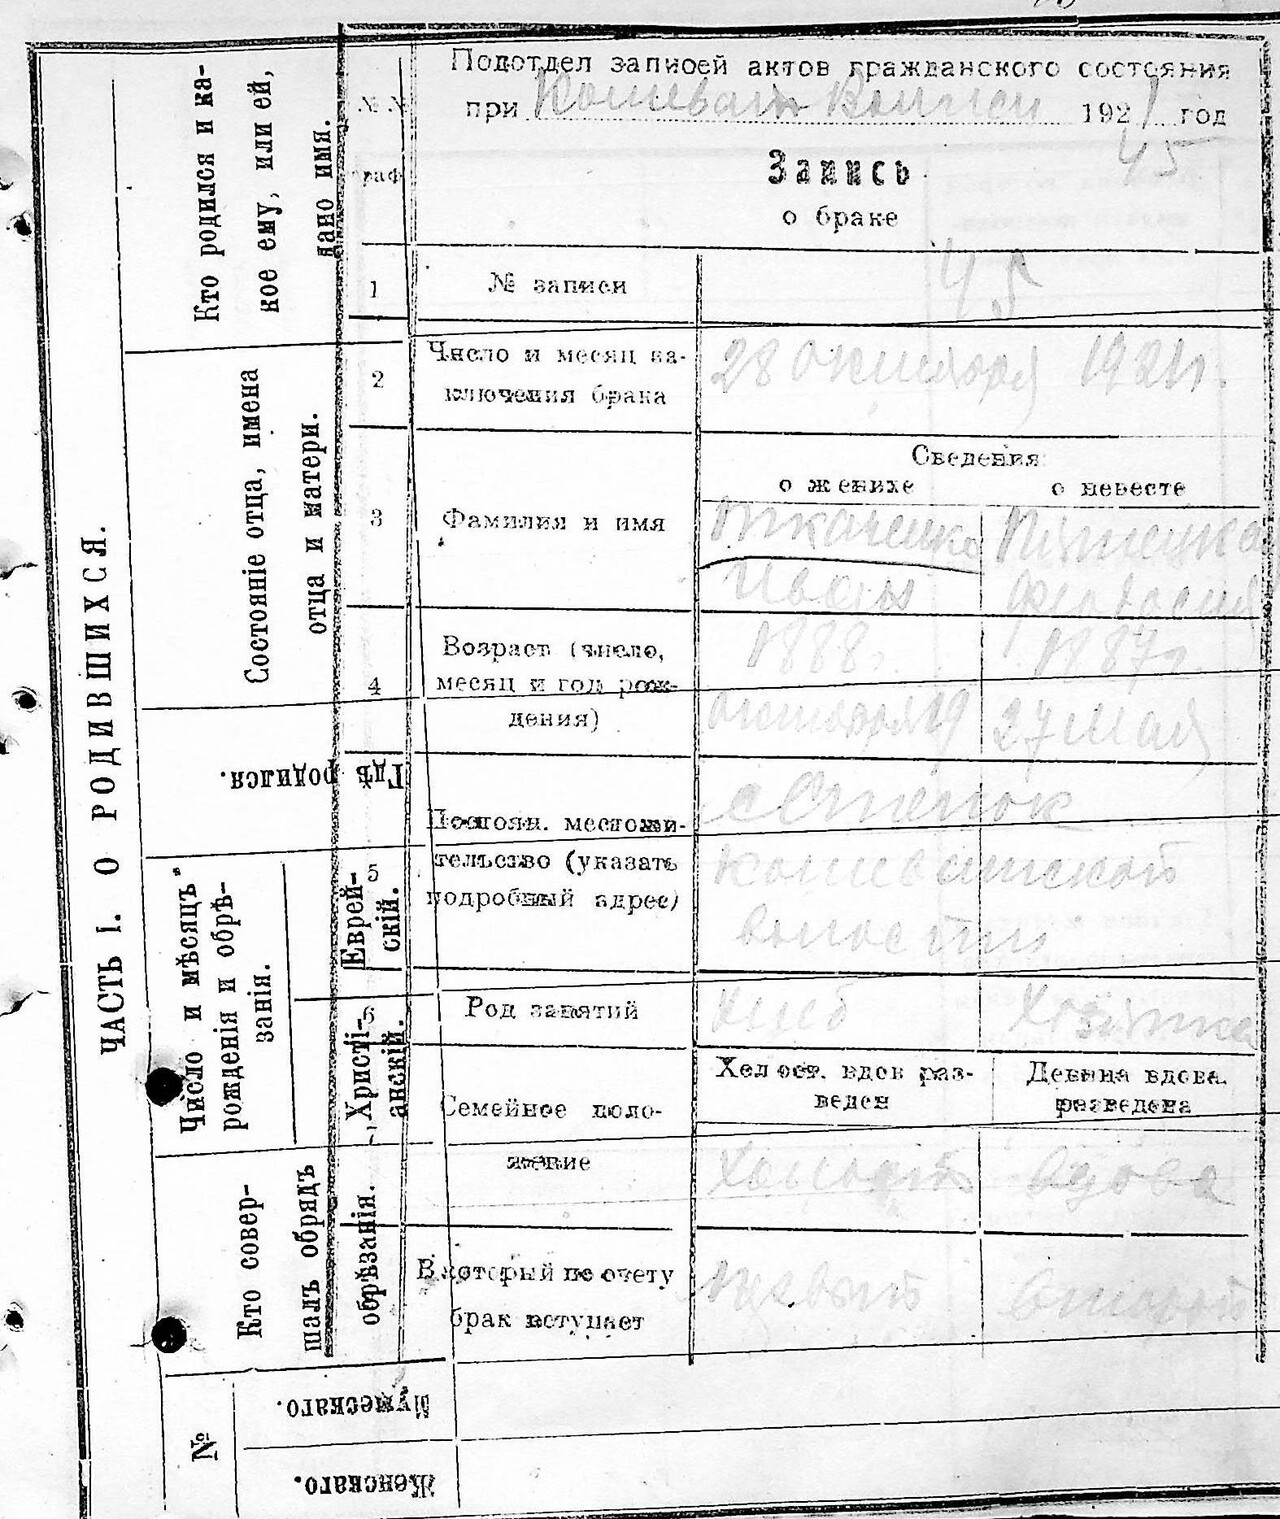 Подотдел записей актов гражданского состояния
при Кошеват Волиси 1921 год
45
№№
граф
Запись
о браке
1 № записи 45
2 Число и месяц за-
ключения брака
28 октября 1921г.
Сведения
о женихе о невесте
3 Фамилия и имя
Ткаченко
Иван Феодосия
4 Возраст (число,
месяц и год рож-
дения)
1888г. 1887г.
октября 19 27 мая
5 Постоян. местожи-
тельство (указать
подробный адрес)
с Степок
Кошеватской
волости
6 Род занятий
Хлеб Хозяйка
Семейное поло-
жение
Холост. вдов раз-
веден
Девица вдова
разведена
Холостой Вдова
В который по счету
брак вступает
Первый второй
ЧАСТЬ I. О РОДИВШИХСЯ.
Кто родился и ка-
кое ему, или ей,
дано имя.
Состоянiе отца, имена
отца и матери.
Гдѣ родился.
Число и мѣсяцъ
рожденiя и обрѣ-
занiя.
Еврей-
скiй.
Христi-
анскiй.
Кто совер-
шалъ обрядъ
обрѣзанiя.
№
Мужескаго.
Женскаго.